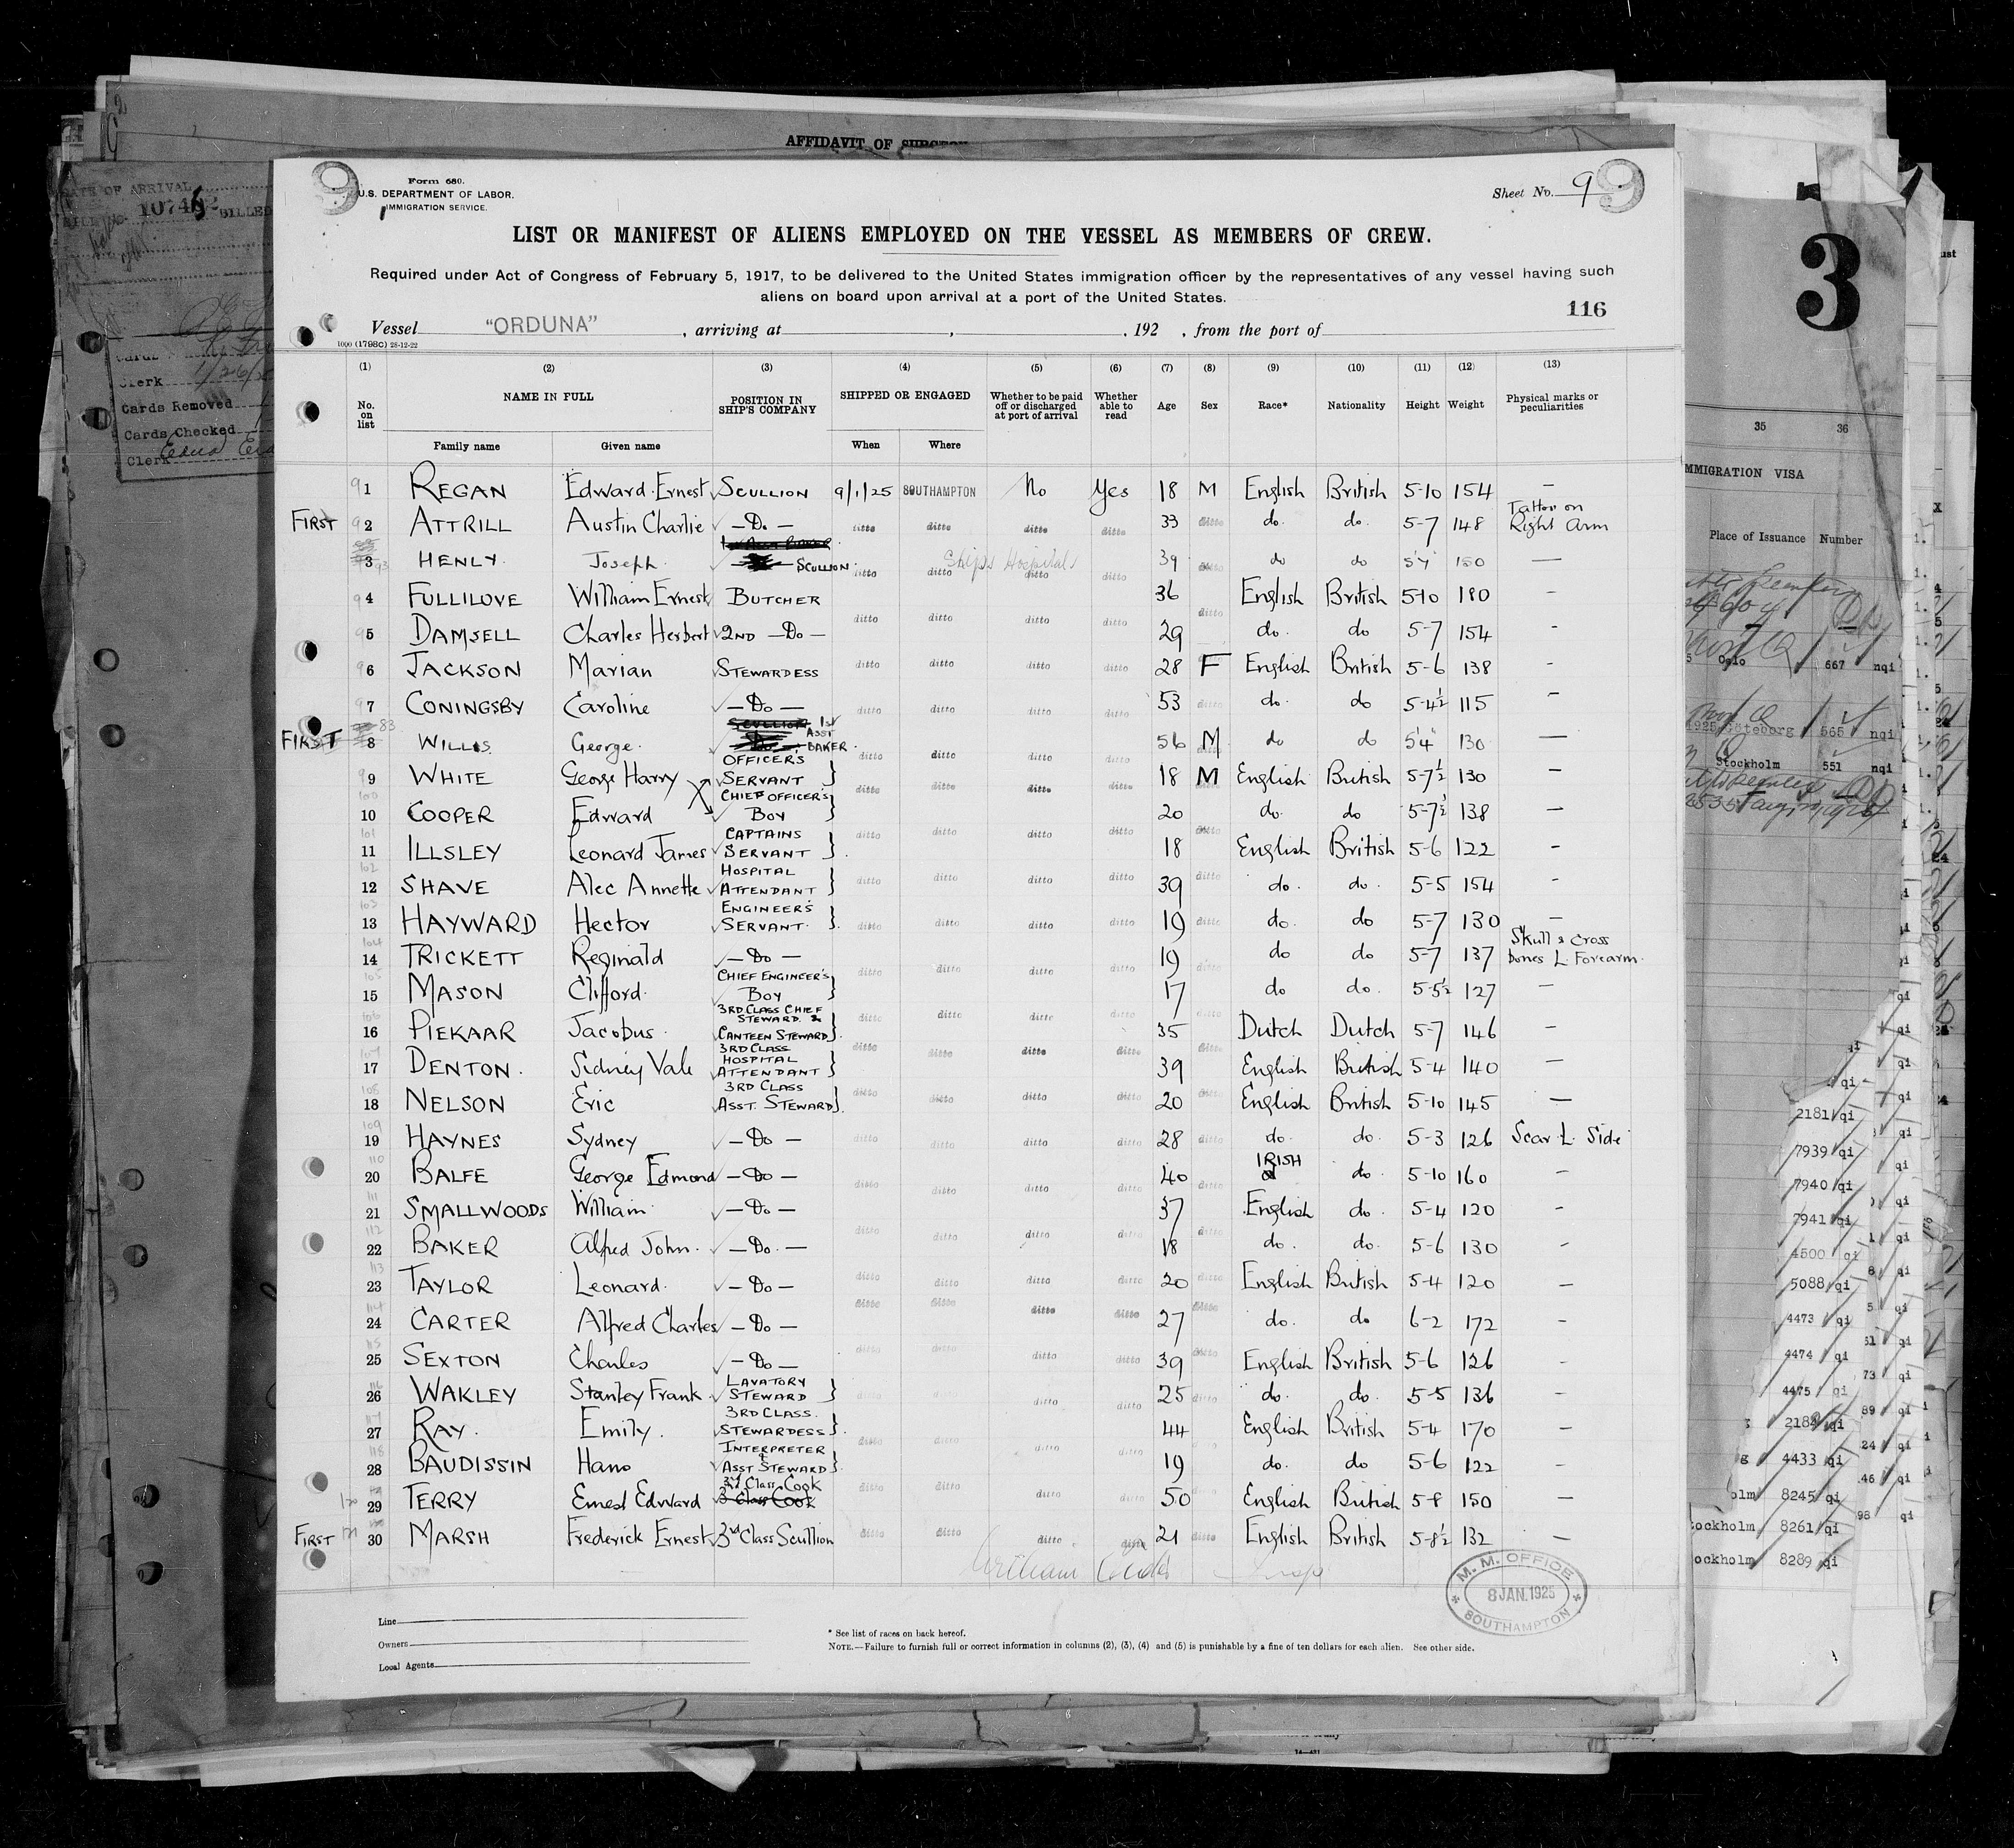 AFFIDAVIT OF SURGEON
9
Form 680.
U.S. DEPARTMENT OF LABOR.
IMMIGRATION SERVICE.
Sheet No. 9
9
LIST OR MANIFEST OF ALIENS EMPLOYED ON THE VESSEL AS MEMBERS OF CREW.
Required under Act of Congress of February 5, 1917, to be delivered to the United States immigration officer by the representatives of any vessel having such
aliens on board upon arrival at a port of the United States.
116
Vessel "ORDUNA", arriving at , , 192 , from the port of
1000 (1798C) 28-12-22
(1) (2) (3) (4) (5) (6) (7) (8) (9) (10) (11) (12) (13)
No. on list NAME IN FULL POSITION IN SHIP'S COMPANY SHIPPED OR ENGAGED Whether to be paid off or discharged at port of arrival Whether able to read Age Sex Race* Nationality Height Weight Physical marks or peculiarities
Family name Given name When Where
91 REGAN Edward Ernest SCULLION 9/1/25 SOUTHAMPTON No Yes 18 M English British 5-10 154 —
FIRST 92 ATTRILL Austin Charlie — Do — ditto ditto ditto ditto 33 ditto do. do. 5-7 148 Tattoo on Right Arm
93 3 HENLY. Joseph. SCULLION. ditto ditto Ships Hospital ditto ditto 39 ditto do do 5'4" 150 —
94 FULLILOVE William Ernest BUTCHER ditto ditto ditto ditto 36 ditto English British 5-10 180 -
95 DAMSELL Charles Herbert 2ND — Do — 29 do. do 5-7 154 -
96 JACKSON Marian STEWARDESS ditto ditto ditto ditto 28 F English British 5-6 138 -
97 CONINGSBY Caroline — Do — ditto ditto ditto ditto 53 ditto do. do 5-4½ 115 —
FIRST 83 8 WILLIS. George. 1st ASST BAKER. ditto ditto ditto ditto 56 M do do 5'4" 130 —
99 WHITE George Harry OFFICERS SERVANT } ditto ditto ditto ditto 18 M English British 5-7½ 130 —
100 10 COOPER Edward CHIEF OFFICER'S BOY } ditto ditto ditto ditto 20 ditto do. do 5-7½ 138 —
101 11 ILLSLEY Leonard James CAPTAINS SERVANT } 18 English British 5-6 122 -
102 12 SHAVE Alec Annette HOSPITAL ATTENDANT } ditto ditto ditto ditto 39 ditto do. do. 5-5 154 -
103 13 HAYWARD Hector ENGINEER'S SERVANT. } ditto ditto ditto ditto 19 ditto do. do 5-7 130 —
104 14 TRICKETT Reginald — Do — ditto ditto ditto ditto 19 ditto do do 5-7 137 Skull & Cross bones L. Forearm.
105 15 MASON Clifford. CHIEF ENGINEER'S BOY } 17 do do. 5-5½ 127 —
106 16 PIEKAAR Jacobus. 3RD CLASS CHIEF STEWARD. & CANTEEN STEWARD } ditto ditto ditto ditto 35 ditto Dutch Dutch 5-7 146 —
107 17 DENTON. Sidney Vale 3RD CLASS HOSPITAL ATTENDANT } ditto ditto ditto ditto 39 ditto English British 5-4 140 —
108 18 NELSON Eric 3RD CLASS ASST. STEWARD } ditto ditto ditto ditto 20 ditto English British 5-10 145 —
109 19 HAYNES Sydney — Do — ditto ditto ditto ditto 28 ditto do. do. 5-3 126 Scar L. Side
110 20 BALFE George Edmond — Do — ditto ditto ditto ditto 40 ditto IRISH do. 5-10 160 —
111 21 SMALLWOODS William. — Do — 37 English do. 5-4 120 -
112 22 BAKER Alfred John. — Do. — ditto ditto ditto ditto 18 ditto do. do. 5-6 130 -
113 23 TAYLOR Leonard. — Do — ditto ditto ditto ditto 20 ditto English British 5-4 120 —
114 24 CARTER Alfred Charles — Do — ditto ditto ditto ditto 27 ditto do. do 6-2 172 -
115 25 SEXTON Charles — Do — ditto ditto ditto ditto 39 ditto English British 5-6 126 -
116 26 WAKLEY Stanley Frank LAVATORY STEWARD } ditto ditto ditto ditto 25 ditto do. do. 5-5 136 -
117 27 RAY. Emily. 3RD CLASS. STEWARDESS } 44 English British 5-4 170 —
118 28 BAUDISSIN Hans INTERPRETER & ASST STEWARD } ditto ditto ditto ditto 19 do. do 5-6 122 —
120 29 TERRY Ernest Edward 3rd Class Cook ditto ditto ditto ditto 50 ditto English British 5-8 150 —
FIRST 121 30 MARSH Frederick Ernest 3rd Class Scullion ditto ditto ditto ditto 21 ditto English British 5-8½ 132 —
M. M. OFFICE
8 JAN. 1925
SOUTHAMPTON
Line
Owners
Local Agents
* See list of races on back hereof.
NOTE.—Failure to furnish full or correct information in columns (2), (3), (4) and (5) is punishable by a fine of ten dollars for each alien. See other side.
DATE OF ARRIVAL
BILLED
Clerk
Cards Removed
Cards Checked
Clerk
3
35 36
IMMIGRATION VISA
Place of Issuance Number
Oslo 667 nqi
1925 Göteborg 565 nqi
Stockholm 551 nqi
2181 qi
7939 qi
7940 qi
7941 qi
4500 qi
5088 qi
4473 qi
4474 qi
4475 qi
4433 qi
8245 qi
tockholm 8261 qi
ockholm 8289 qi